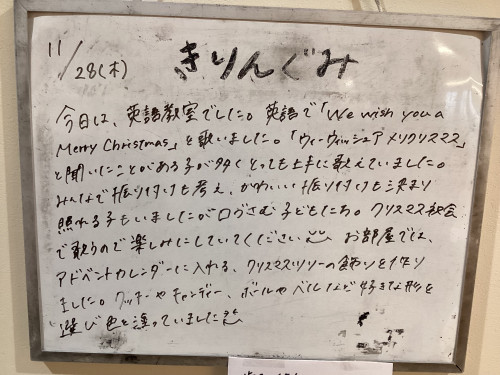 11/28(木)
きりんぐみ
今日は、英語教室でした。英語で「We wish you a
Merry Christmas」を歌いました。「ウィーウィッシュア メリクリスマス」
と聞いたことがある子が多く とっても上手に歌えていました。
みんなで振り付けも考え、かわいい振り付けも決まり
照れる子もいましたが口ずさむ子どもたち。クリスマス会
で歌うので楽しみにしていてください お部屋では、
アドベントカレンダーに入れる、クリスマスツリーの飾りを作り
ました。クッキーやキャンディー、ボールやベルなど好きな形を
選び色を塗っていました